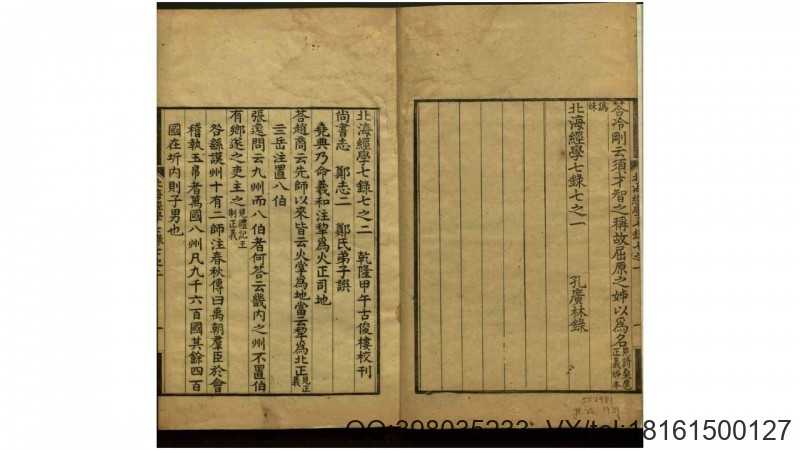 答冷剛云須才智之稱故屈原之姊以為名
北海經學七錄七之一 孔廣林錄
北海經學七錄七之二 乾隆甲午古俊樓校刊
尚書志 鄭志二 鄭氏弟子譔
堯典乃命羲和注犂為火正司地
答趙商云先師以來皆云火掌為地當云犂為北正見正義
三岳注置八伯
張逸問云九州而八伯者何答云畿內之州不置伯
有鄉遂之吏主之見禮記王制正義
咎繇謨州十有二師注春秋傳曰禹朝羣臣於會
稽執玉帛者萬國八州凡九千六百國其餘四百
國在圻內則子男也
QQ:398035233 VX/tel:18161500127